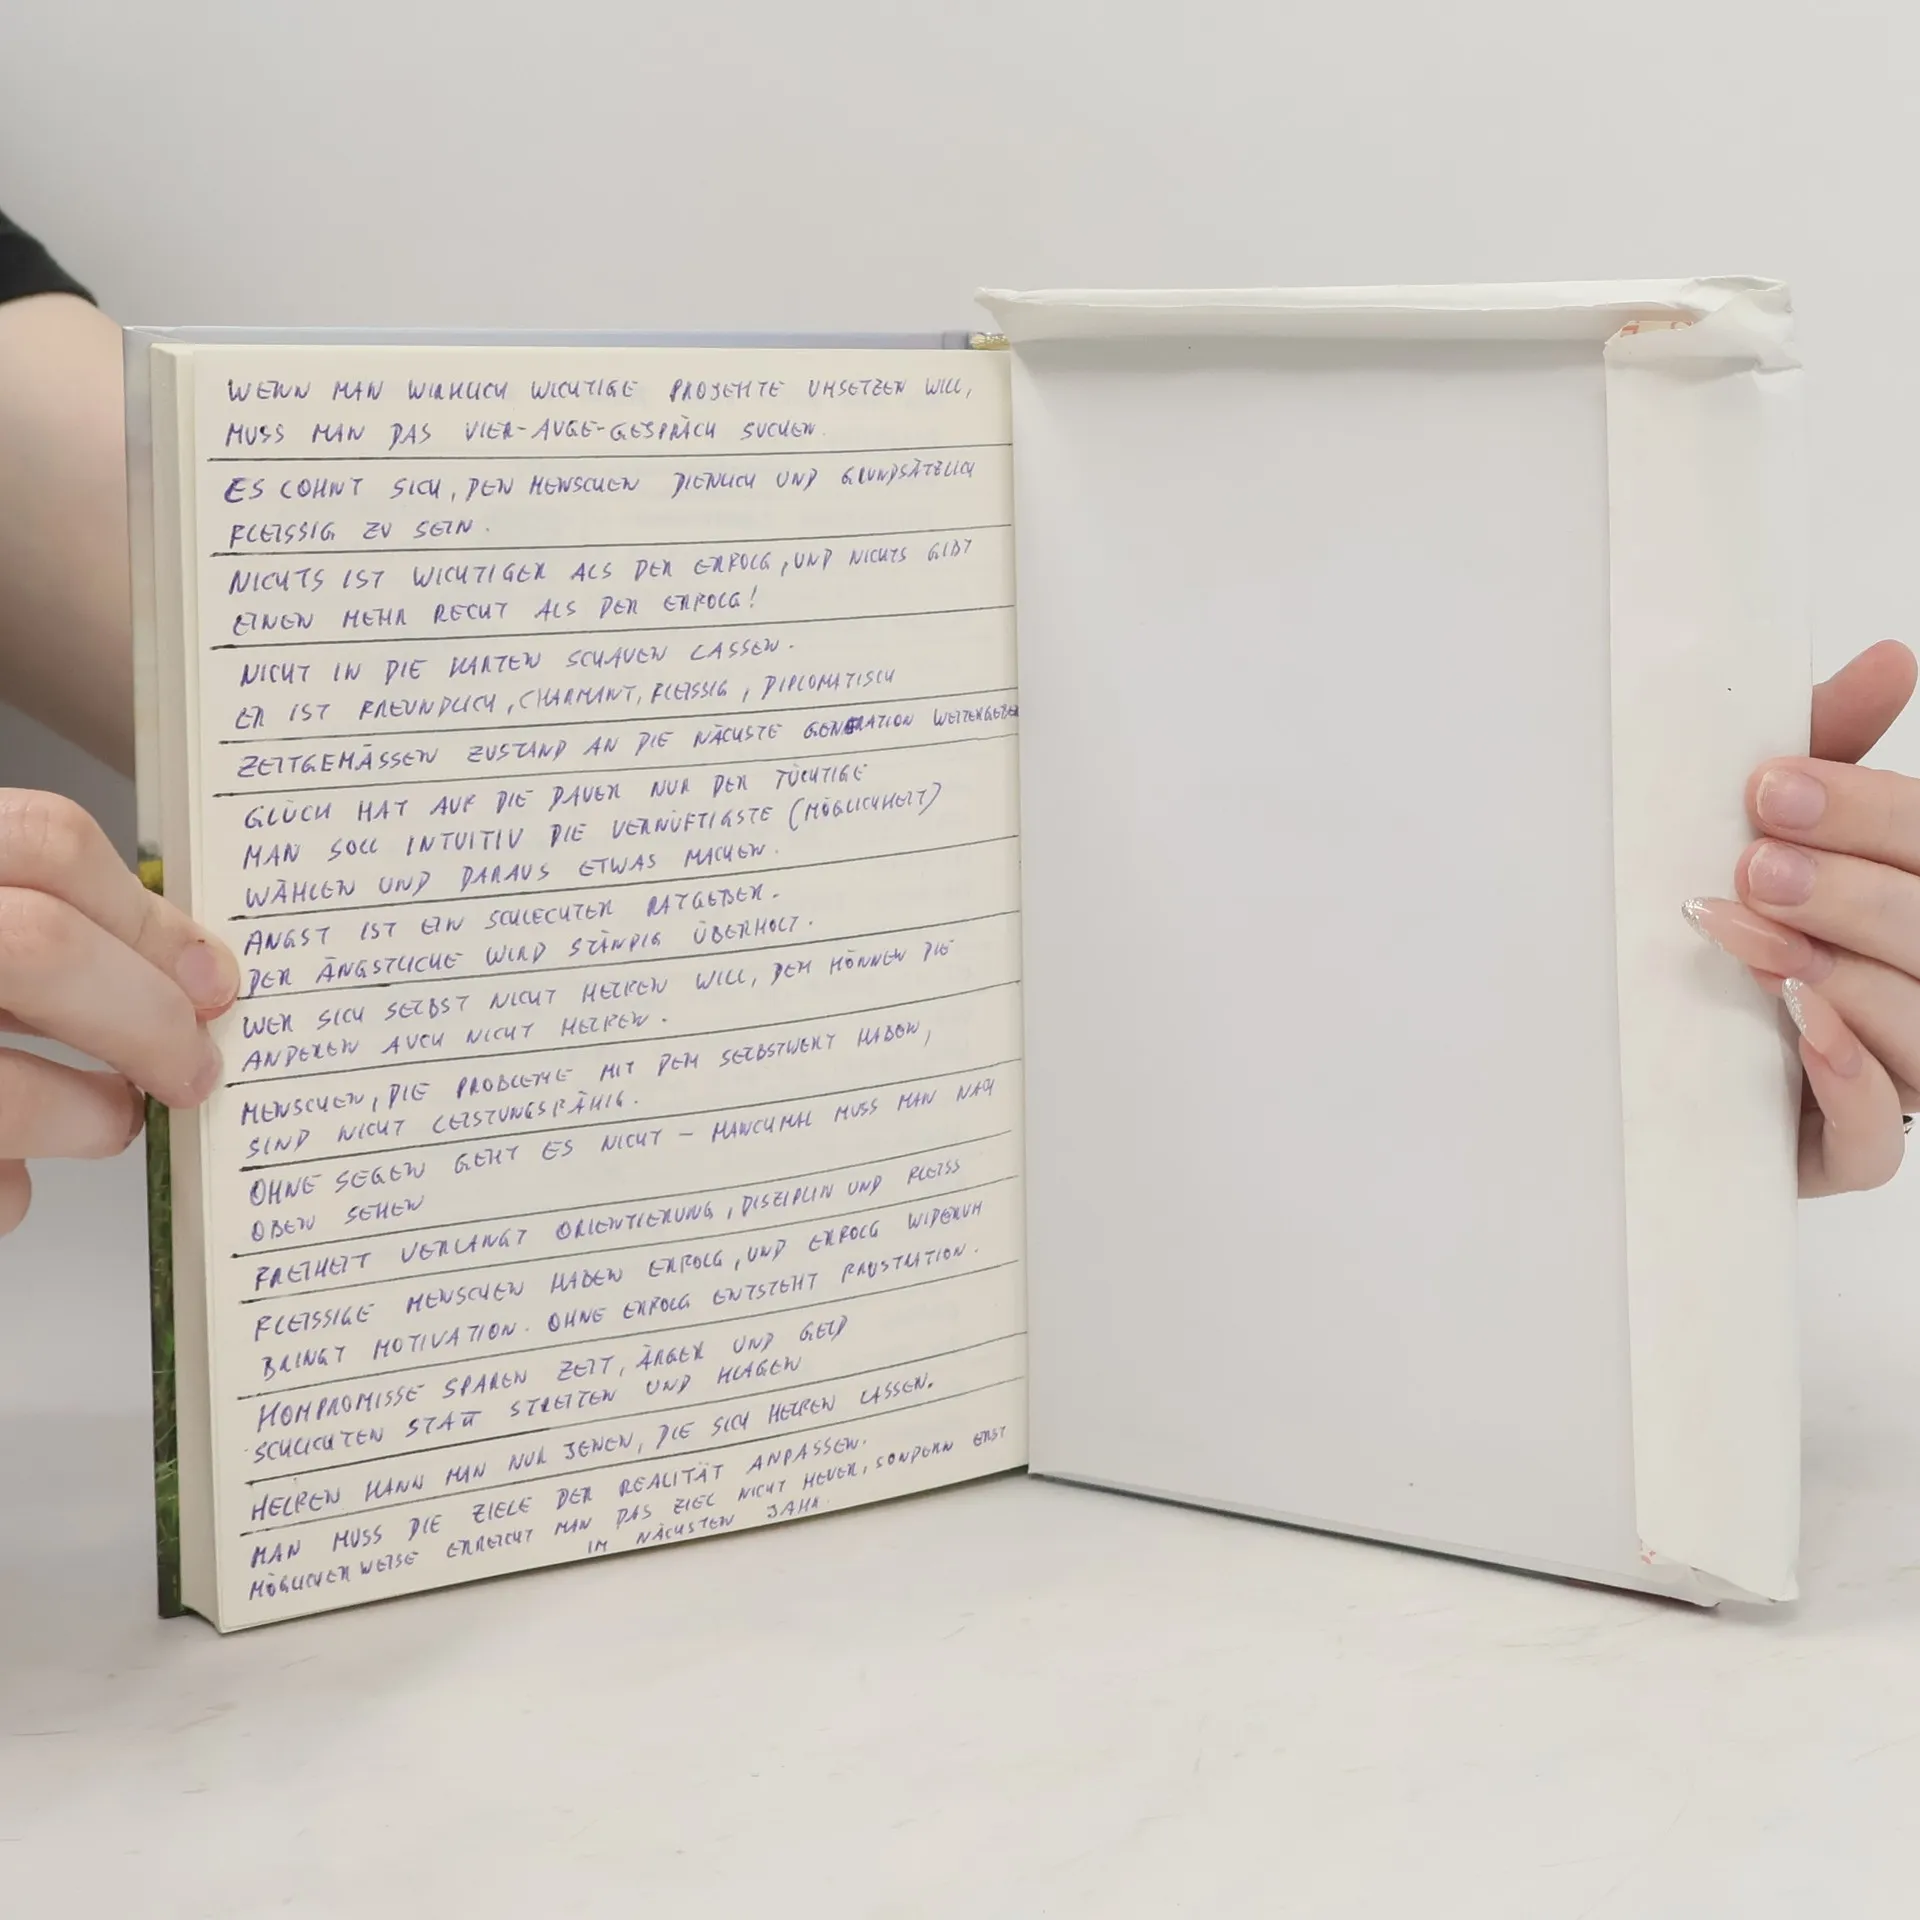 WENN MAN WIRKLICH WICHTIGE PROJEKTE UMSETZEN WILL,
MUSS MAN DAS VIER-AUGE-GESPRÄCH SUCHEN.
ES LOHNT SICH, DEN MENSCHEN DIENLICH UND GRUNDSÄTZLICH
FLEISSIG ZU SEIN.
NICHTS IST WICHTIGER ALS DER ERFOLG, UND NICHTS GIBT
EINEM MEHR RECHT ALS DER ERFOLG!
NICHT IN DIE KARTEN SCHAUEN LASSEN.
ER IST FREUNDLICH, CHARMANT, FLEISSIG, DIPLOMATISCH
ZEITGEMÄSSEN ZUSTAND AN DIE NÄCHSTE GENERATION WEITERGEBEN
GLÜCK HAT AUF DIE DAUER NUR DER TÜCHTIGE
MAN SOLL INTUITIV DIE VERNÜFTIGSTE (MÖGLICHKEIT)
WÄHLEN UND DARAUS ETWAS MACHEN.
ANGST IST EIN SCHLECHTER RATGEBER.
DER ÄNGSTLICHE WIRD STÄNDIG ÜBERHOLT.
WER SICH SELBST NICHT HELFEN WILL, DEM KÖNNEN DIE
ANDEREN AUCH NICHT HELFEN.
MENSCHEN, DIE PROBLEME MIT DEM SELBSTWERT HABEN,
SIND NICHT LEISTUNGSFÄHIG.
OHNE SEGEN GEHT ES NICHT – MANCHMAL MUSS MAN NACH
OBEN SEHEN
FREIHEIT VERLANGT ORIENTIERUNG, DISZIPLIN UND FLEISS
FLEISSIGE MENSCHEN HABEN ERFOLG, UND ERFOLG WIDERUM
BRINGT MOTIVATION. OHNE ERFOLG ENTSTEHT FRUSTRATION.
KOMPROMISSE SPAREN ZEIT, ÄRGER UND GELD
SCHLICHTEN STATT STREITEN UND KLAGEN
HELFEN KANN MAN NUR JENEN, DIE SICH HELFEN LASSEN.
MAN MUSS DIE ZIELE DER REALITÄT ANPASSEN.
MÖGLICHERWEISE ERREICHT MAN DAS ZIEL NICHT HEUER, SONDERN ERST
IM NÄCHSTEN JAHR.